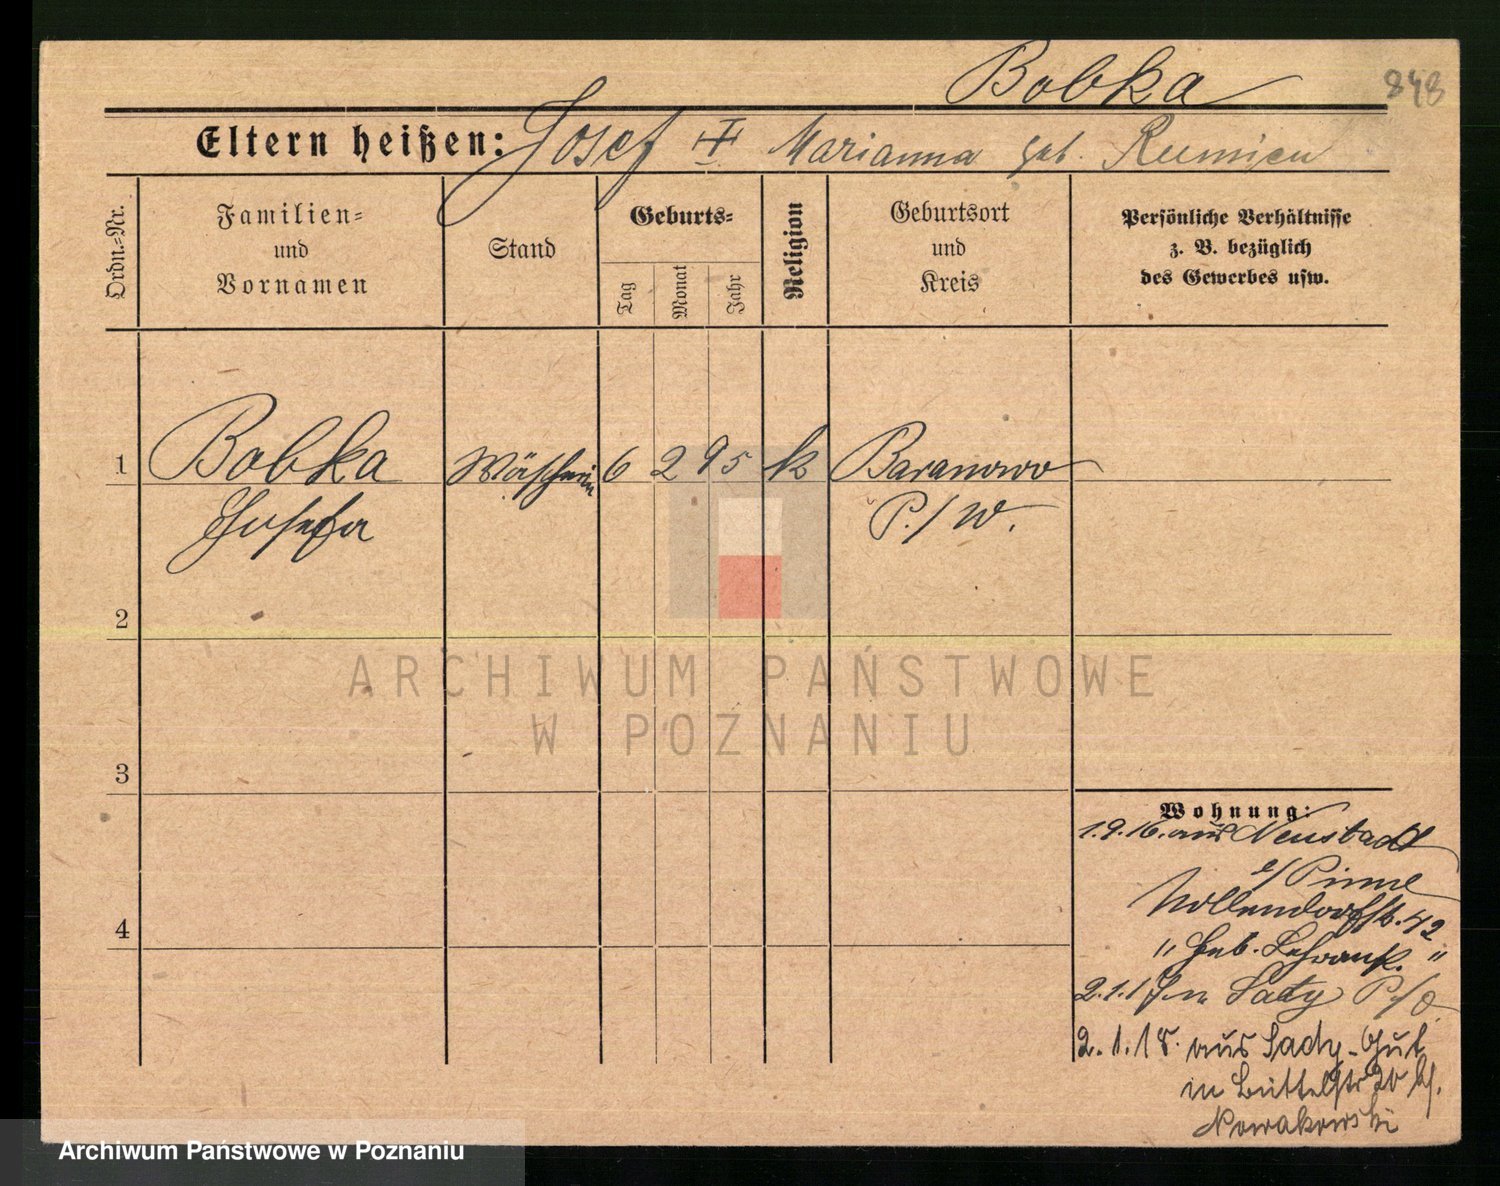 Bobka
848
Eltern heißen: Josef † Marianna geb.
Ordn.=Nr.
Familien=
und
Vornamen
Stand
Geburts=
Tag
Monat
Jahr
Religion
Geburtsort
und
Kreis
Persönliche Verhältnisse
z. B. bezüglich
des Gewerbes usw.
1 Bobka Wäscherin 6 2 95 k Baranowo
Josefa P./W.
2
ARCHIWUM PAŃSTWOWE
W POZNANIU
3
Wohnung:
1.9.16. aus Neustadt
b/Pinne
Nollendorfstr. 42
" Geb. "
2.1.17 n. Sady P./O.
2.1.18. aus Sady-Gut
in Büttelstr 20 bs.
Nowakowski
4
Archiwum Państwowe w Poznaniu